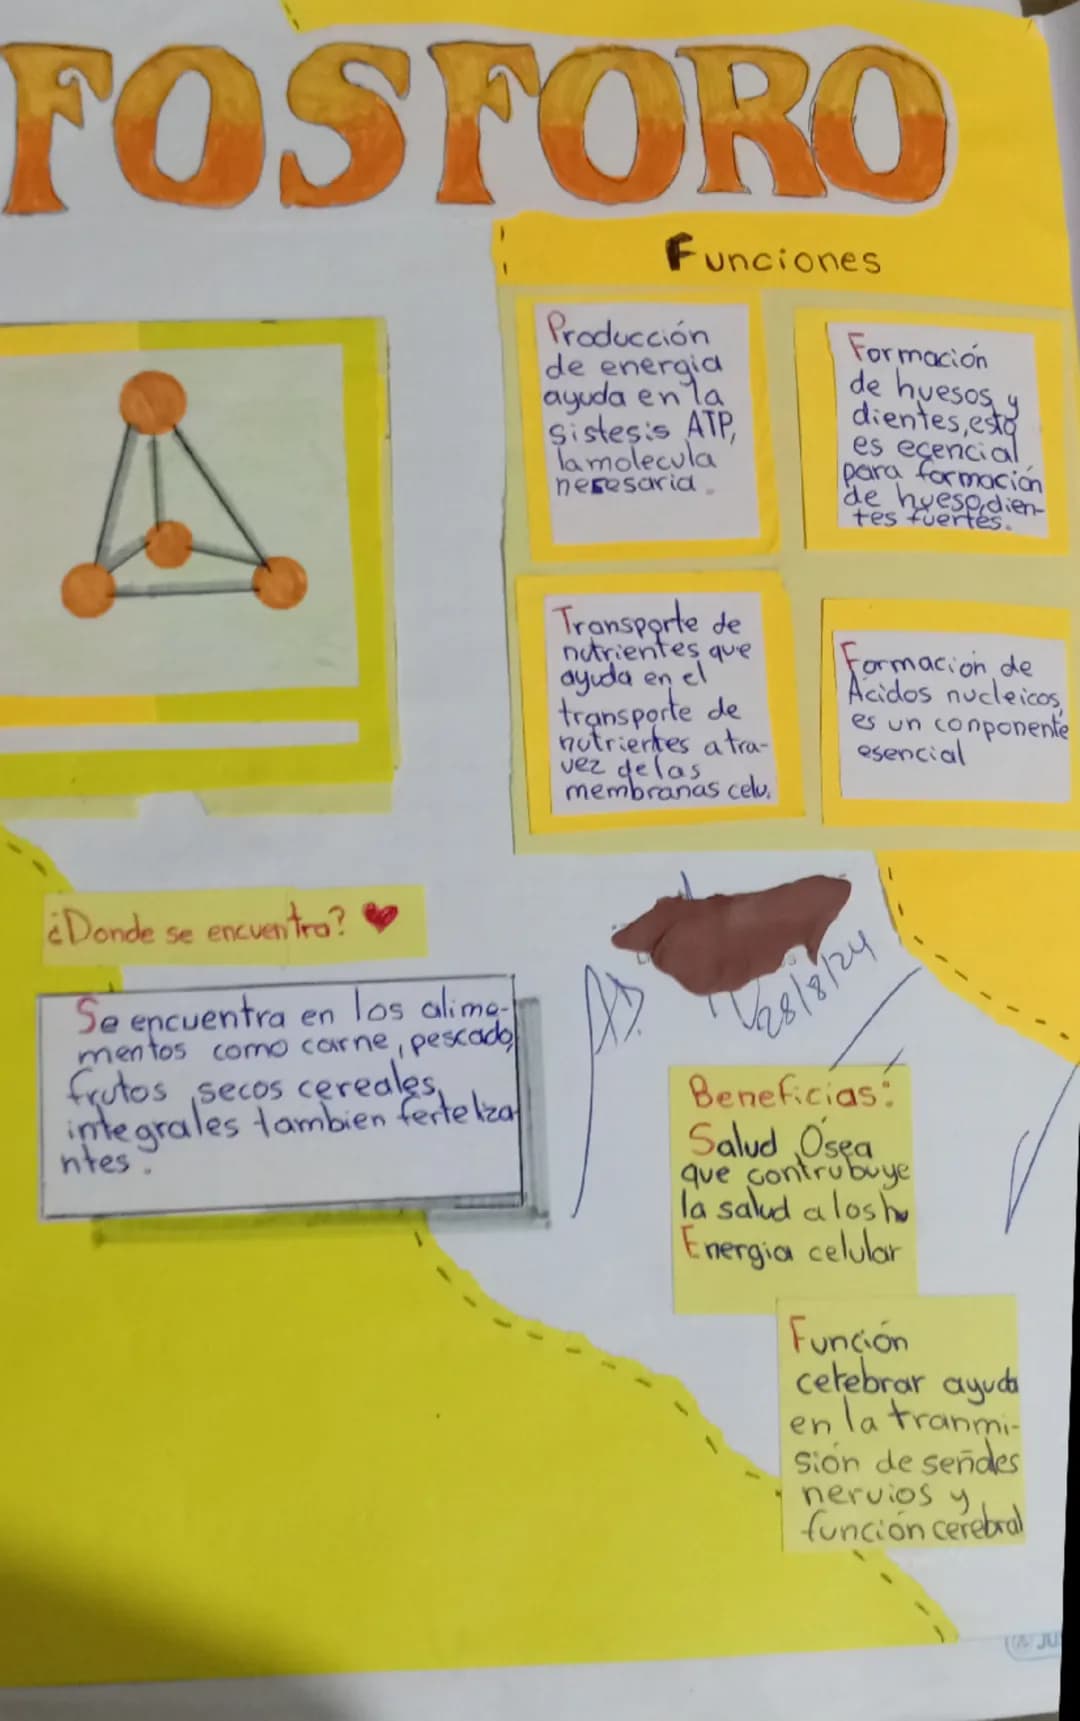 FOSFORO
Funciones
Producción
de energia
ayuda en la
sistesis ATP,
la molecula
neresaria.
Formación
de huesos y
dientes, esto
es ecencial
para formación
de hueso, dien-
tes fuertes.
Transporte de
nutrientes que
ayuda en el
transporte de
nutrientes a tra-
vez de las
membranas celu.
Formación de
Acidos nucleicos,
es un conponente
esencial
¿Donde se encuentra?
Se encuentra en los alime-
mentos como carne, pescado,
frutos secos cereales,
integrales tambien fertelza
ntes.
28/8/24
Beneficias:
Salud Ósea
que contrubuye
la salud a los hu
Energia celular
Función
cerebrar ayuda
en la tranmi-
sión de señales
nervios y
función cerebral
JU